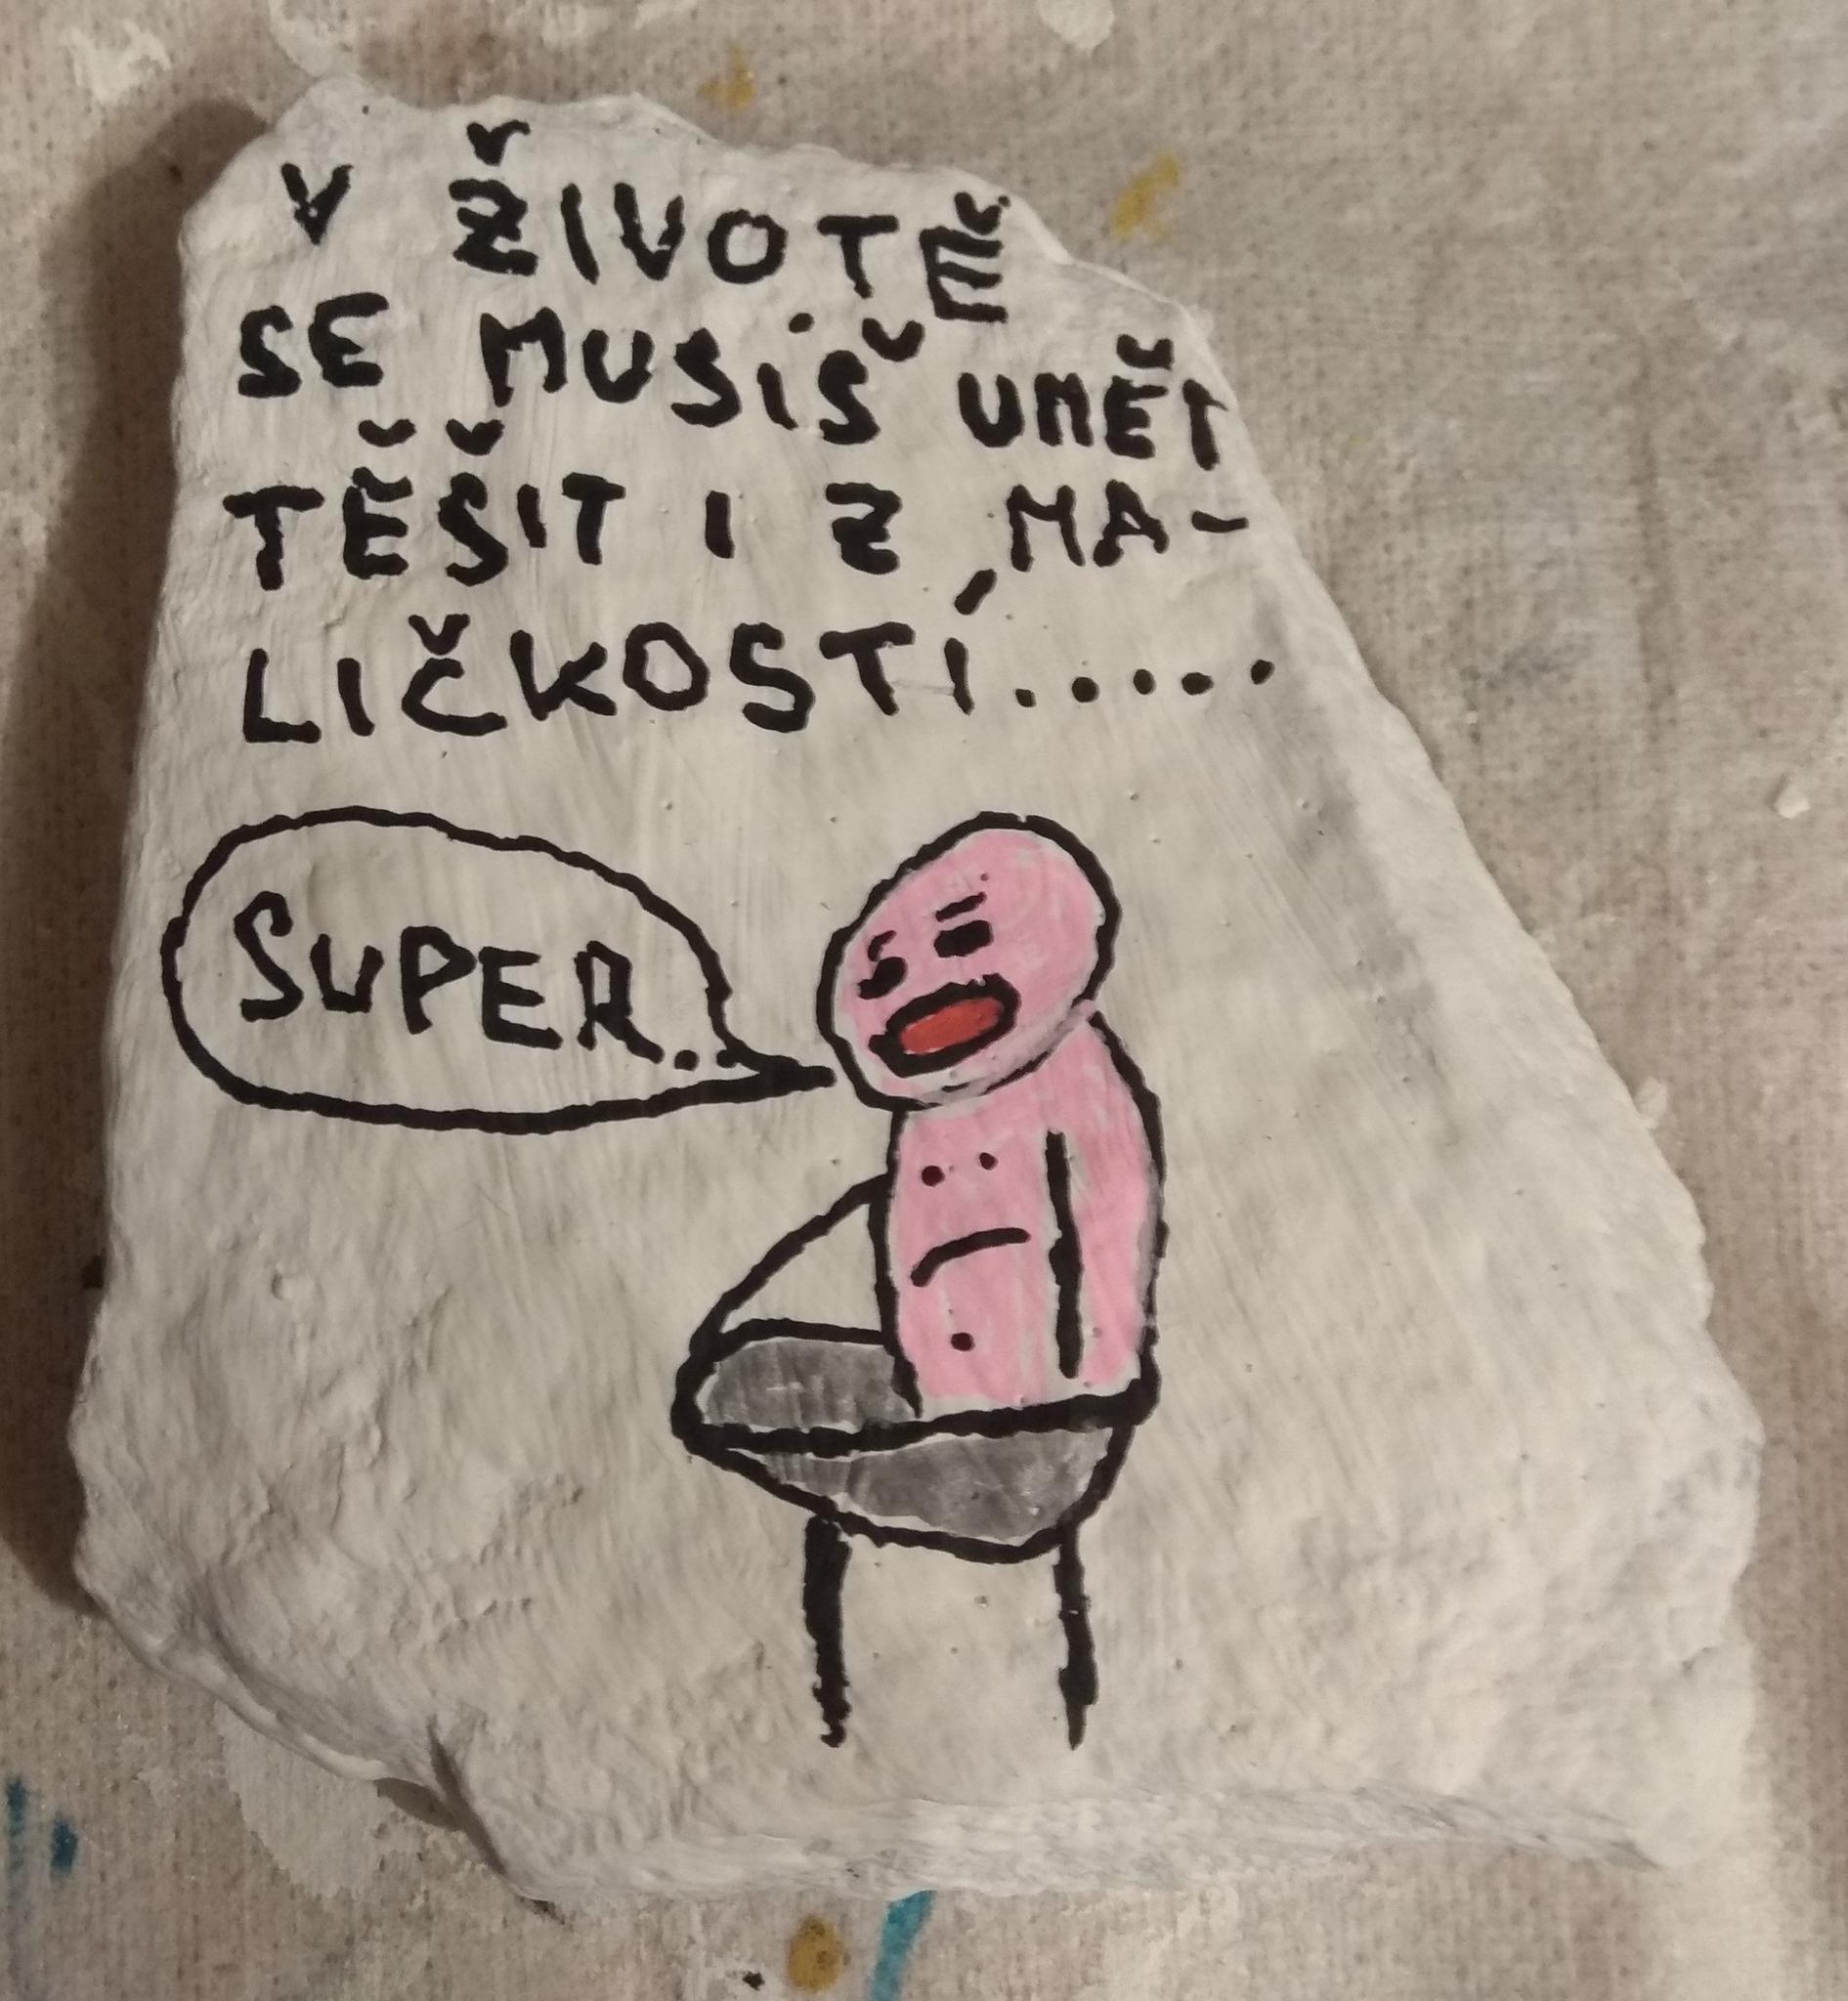 V ŽIVOTĚ
SE MUSÍŠ UMĚT
TĚŠIT I Z MA-
LIČKOSTÍ.....
SUPER..